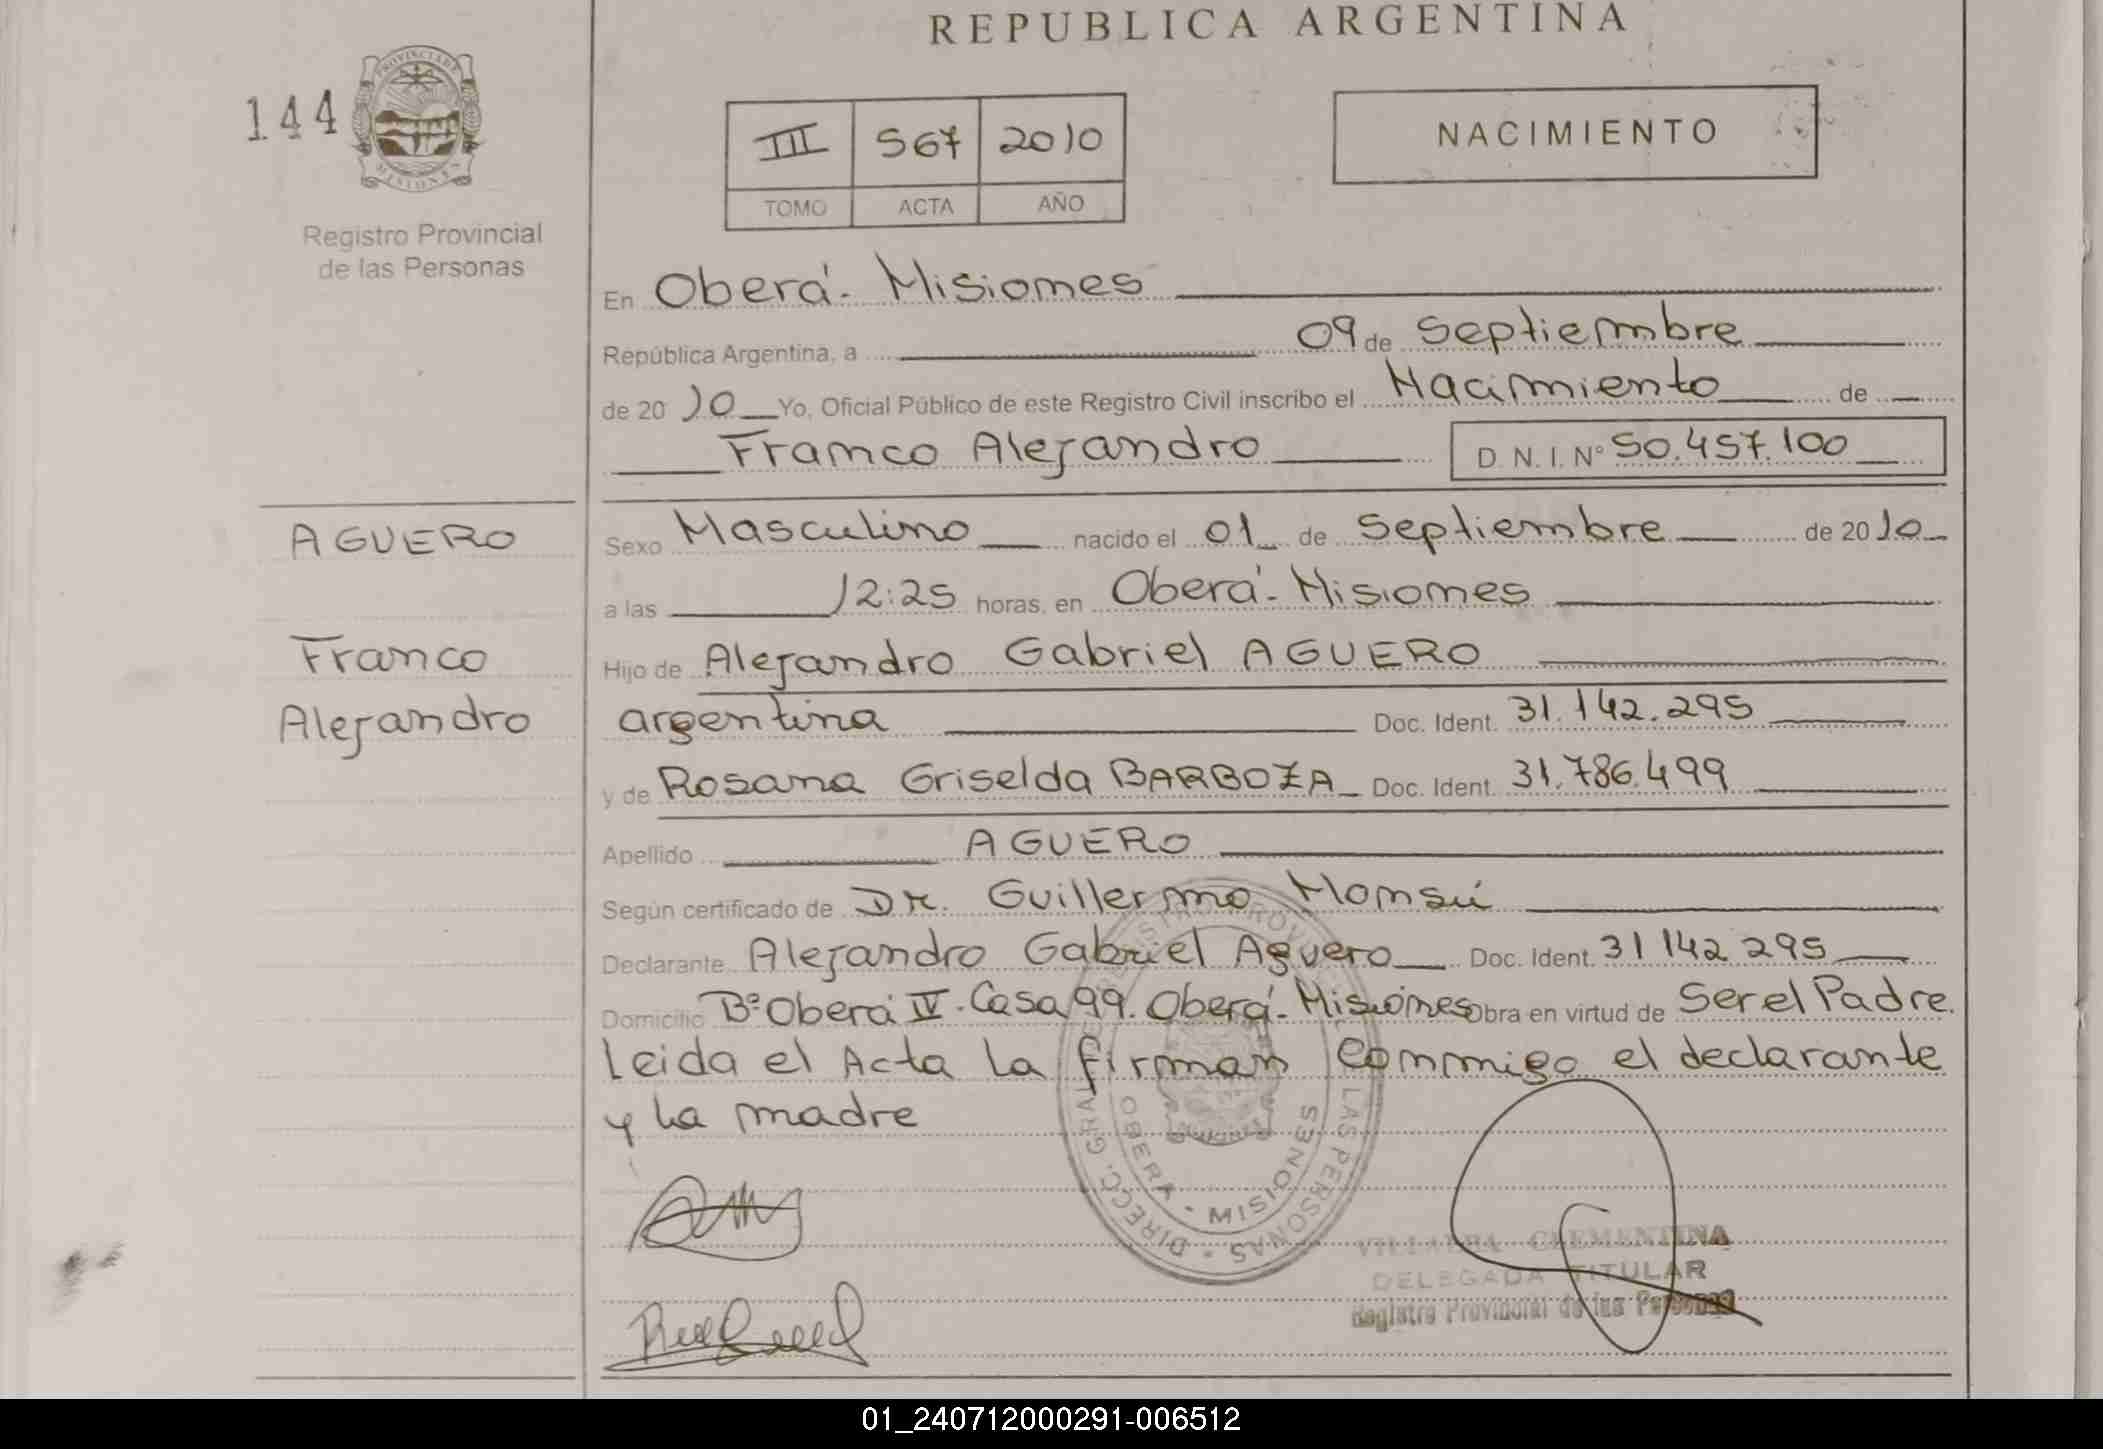 REPUBLICA ARGENTINA
144
PROVINCIA DE
MISIONES
III 567 2010
TOMO ACTA AÑO
NACIMIENTO
Registro Provincial
de las Personas
En Oberá - Misiones
República Argentina, a 09 de Septiembre
de 2010 Yo, Oficial Público de este Registro Civil inscribo el Nacimiento de
Franco Alejandro D.N.I. Nº 50.457.100
AGUERO
Franco
Alejandro
Sexo Masculino nacido el 01 de Septiembre de 2010
a las 12:25 horas, en Oberá - Misiones
Hijo de Alejandro Gabriel AGUERO
argentina Doc. Ident. 31.142.295
y de Rosana Griselda BARBOZA Doc. Ident. 31.786.499
Apellido AGUERO
Según certificado de Dr. Guillermo
Declarante Alejandro Gabriel Aguero Doc. Ident. 31 142 295
Domicilio Bº Oberá IV. Casa 99. Oberá - Misiones Obra en virtud de Ser el Padre.
Leida el Acta la firman conmigo el declarante
y la madre
OBERA - MISIONES
VILLALBA CLEMENTINA
DELEGADA TITULAR
Registro Provincial de las Personas
01_240712000291-006512